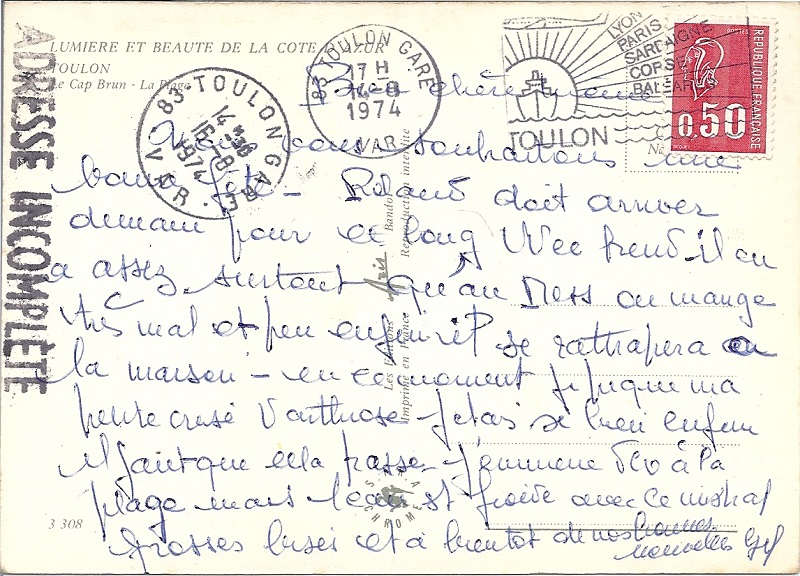 LUMIERE ET BEAUTE DE LA COTE D'AZUR
TOULON
Le Cap Brun - La Plage
ADRESSE INCOMPLÈTE
83 TOULON GARE
14 H 30
16 - 8
1974
VAR
83 TOULON GARE
17 H
14 - 8
1974
VAR
TOULON
LYON
PARIS
SARDAIGNE
CORSE
BALEARES
POSTES
REPUBLIQUE FRANÇAISE
0,50
chère
Nous vous souhaitons une
bonne fête - Roland doit arriver
demain pour ce long Week end il en
a assez surtout qu'au Mess on mange
très mal et peu enfin il se rattrapera à
la maison - en ce moment je pique ma
petite crise d'arthrose - j'étais si bien enfin
il faut que cela passe - j'emmène à la
plage mais l'eau est froide avec ce mistral
grosses bises et à bientôt de nos bonnes
nouvelles
Les Editions Aris Bandol
Imprimé en France Reproduction interdite
CHROME
3 308